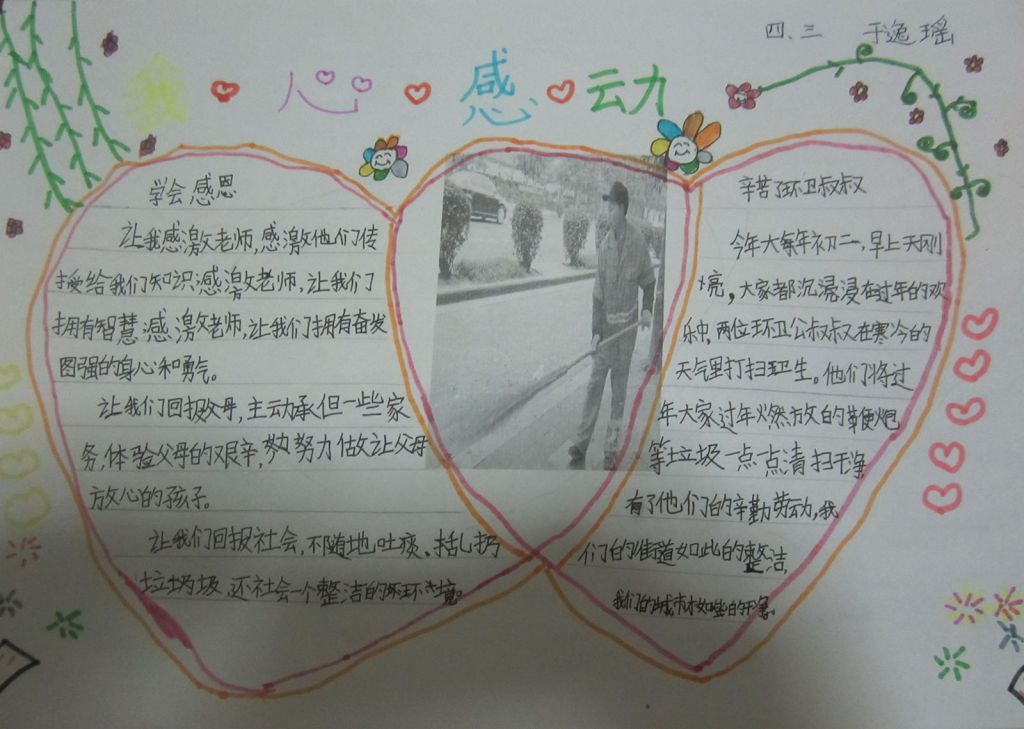 四、三 于逸瑶
我心感动
学会感恩
让我感激老师,感激他们传
授给我们知识感激老师,让我们
拥有智慧感激老师,让我们拥有奋发
图强的身心和勇气。
让我们回报父母,主动承但一些家
务,体验父母的艰辛,努力做让父母
放心的孩子。
让我们回报社会,不随地吐痰、乱扔
垃圾,还社会一个整洁的环境。
辛苦了环卫叔叔
今年大年初二,早上天刚
亮,大家都沉浸在过年的欢
乐中,两位环卫叔叔在寒冷的
天气里打扫卫生。他们将过
年大家过年燃放的鞭炮
等垃圾一点一点清扫干净
有了他们的辛勤劳动,我
们的街道如此的整洁,
我们的城市才如此的干净。